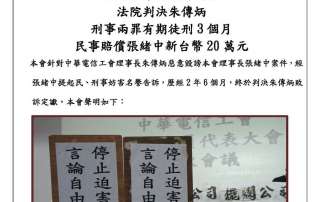 法院判決朱傳炳
刑事兩罪有期徒刑 3 個月
民事賠償張緒中新台幣 20 萬元
本會針對中華電信工會理事長朱傳炳惡意毀謗本會理事長張緒中案件，經
張緒中提起民、刑事妨害名譽告訴，歷經 2 年 6 個月，終於判決朱傳炳敗
訴定讞。本會聲明如下：
中華電信工會
代表大會
會議
停止迫害
言論自由
停止迫害
言論自由